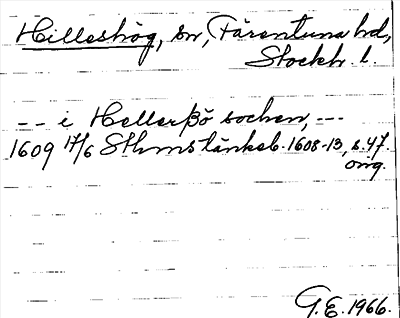 Hilleshög, sn, Färentuna hd,
Stockh. l.
-- i Hellerßö sochen, ---
1609 17/6 Sthms tänkeb. 1608-13, s. 47.
orig.
G.E. 1966.